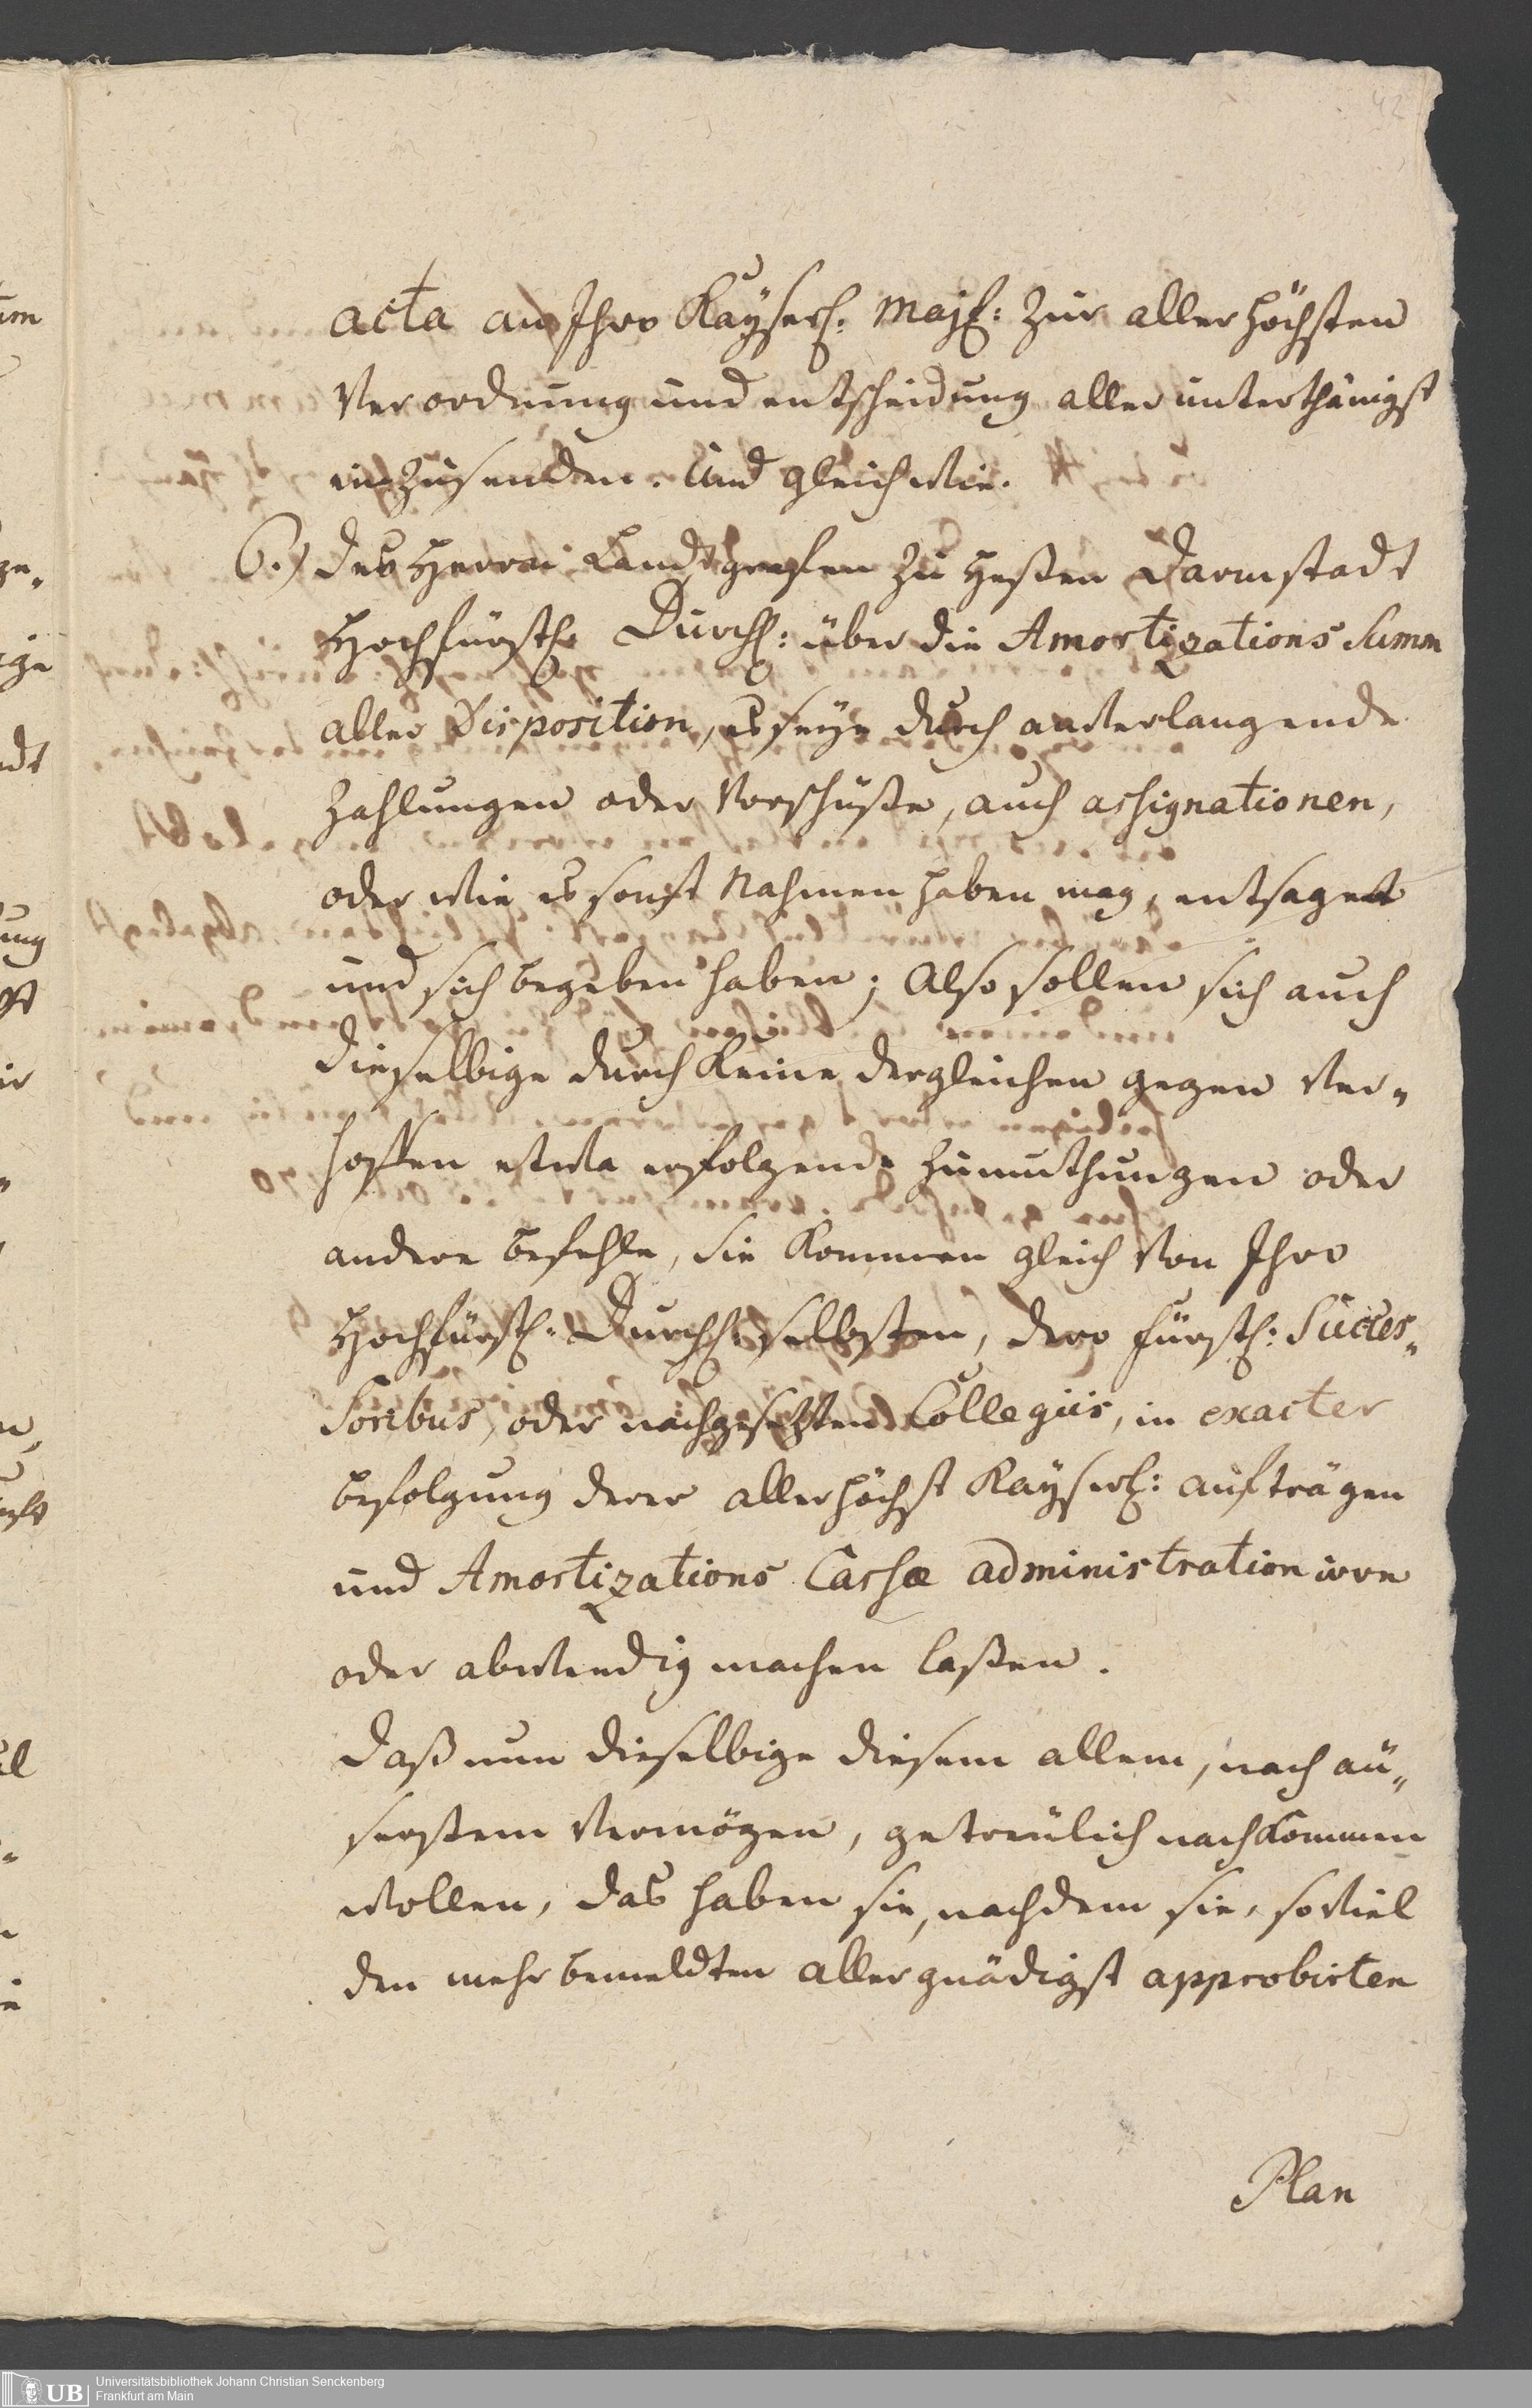 42
acta an Ihro Kayserl: Majt: zur allerhöchsten
Verordnung und entscheidung allerunterthänigst
einzusenden. Und gleichwie.
6.) des Herrn Landtgrafen zu Heßen Darmstadt
Hochfürstl: Durchl: über die Amortizations Summ
aller Disposition, es seye durch anverlangende
Zahlungen oder Vorschüße, auch assignationen,
oder wie es sonst Nahmen haben mag, entsaget
und sich begeben haben; Also sollen sich auch
dieselbige durch keine dergleichen gegen Ver„
hoffen etwa erfolgende Zumuthungen oder
andere Befehle, sie kommen gleich von Ihro
Hochfürstl: Durchl: selbsten, dero Fürstl: Succes„
soribus, oder nachgesetzten Collegiis, in exacter
befolgung derer allerhöchst Kayserl: aufträgen
und Amortizations Cassæ administration irre
oder abwendig machen laßen.
Daß nun dieselbige diesem allem, nach äu„
serstem Vermögen, getreulich nachkommen
wollen, das haben sie, nachdem sie, soviel
den mehrbemeldten allergnädigst approbirten
Plan
UB
Universitätsbibliothek Johann Christian Senckenberg
Frankfurt am Main